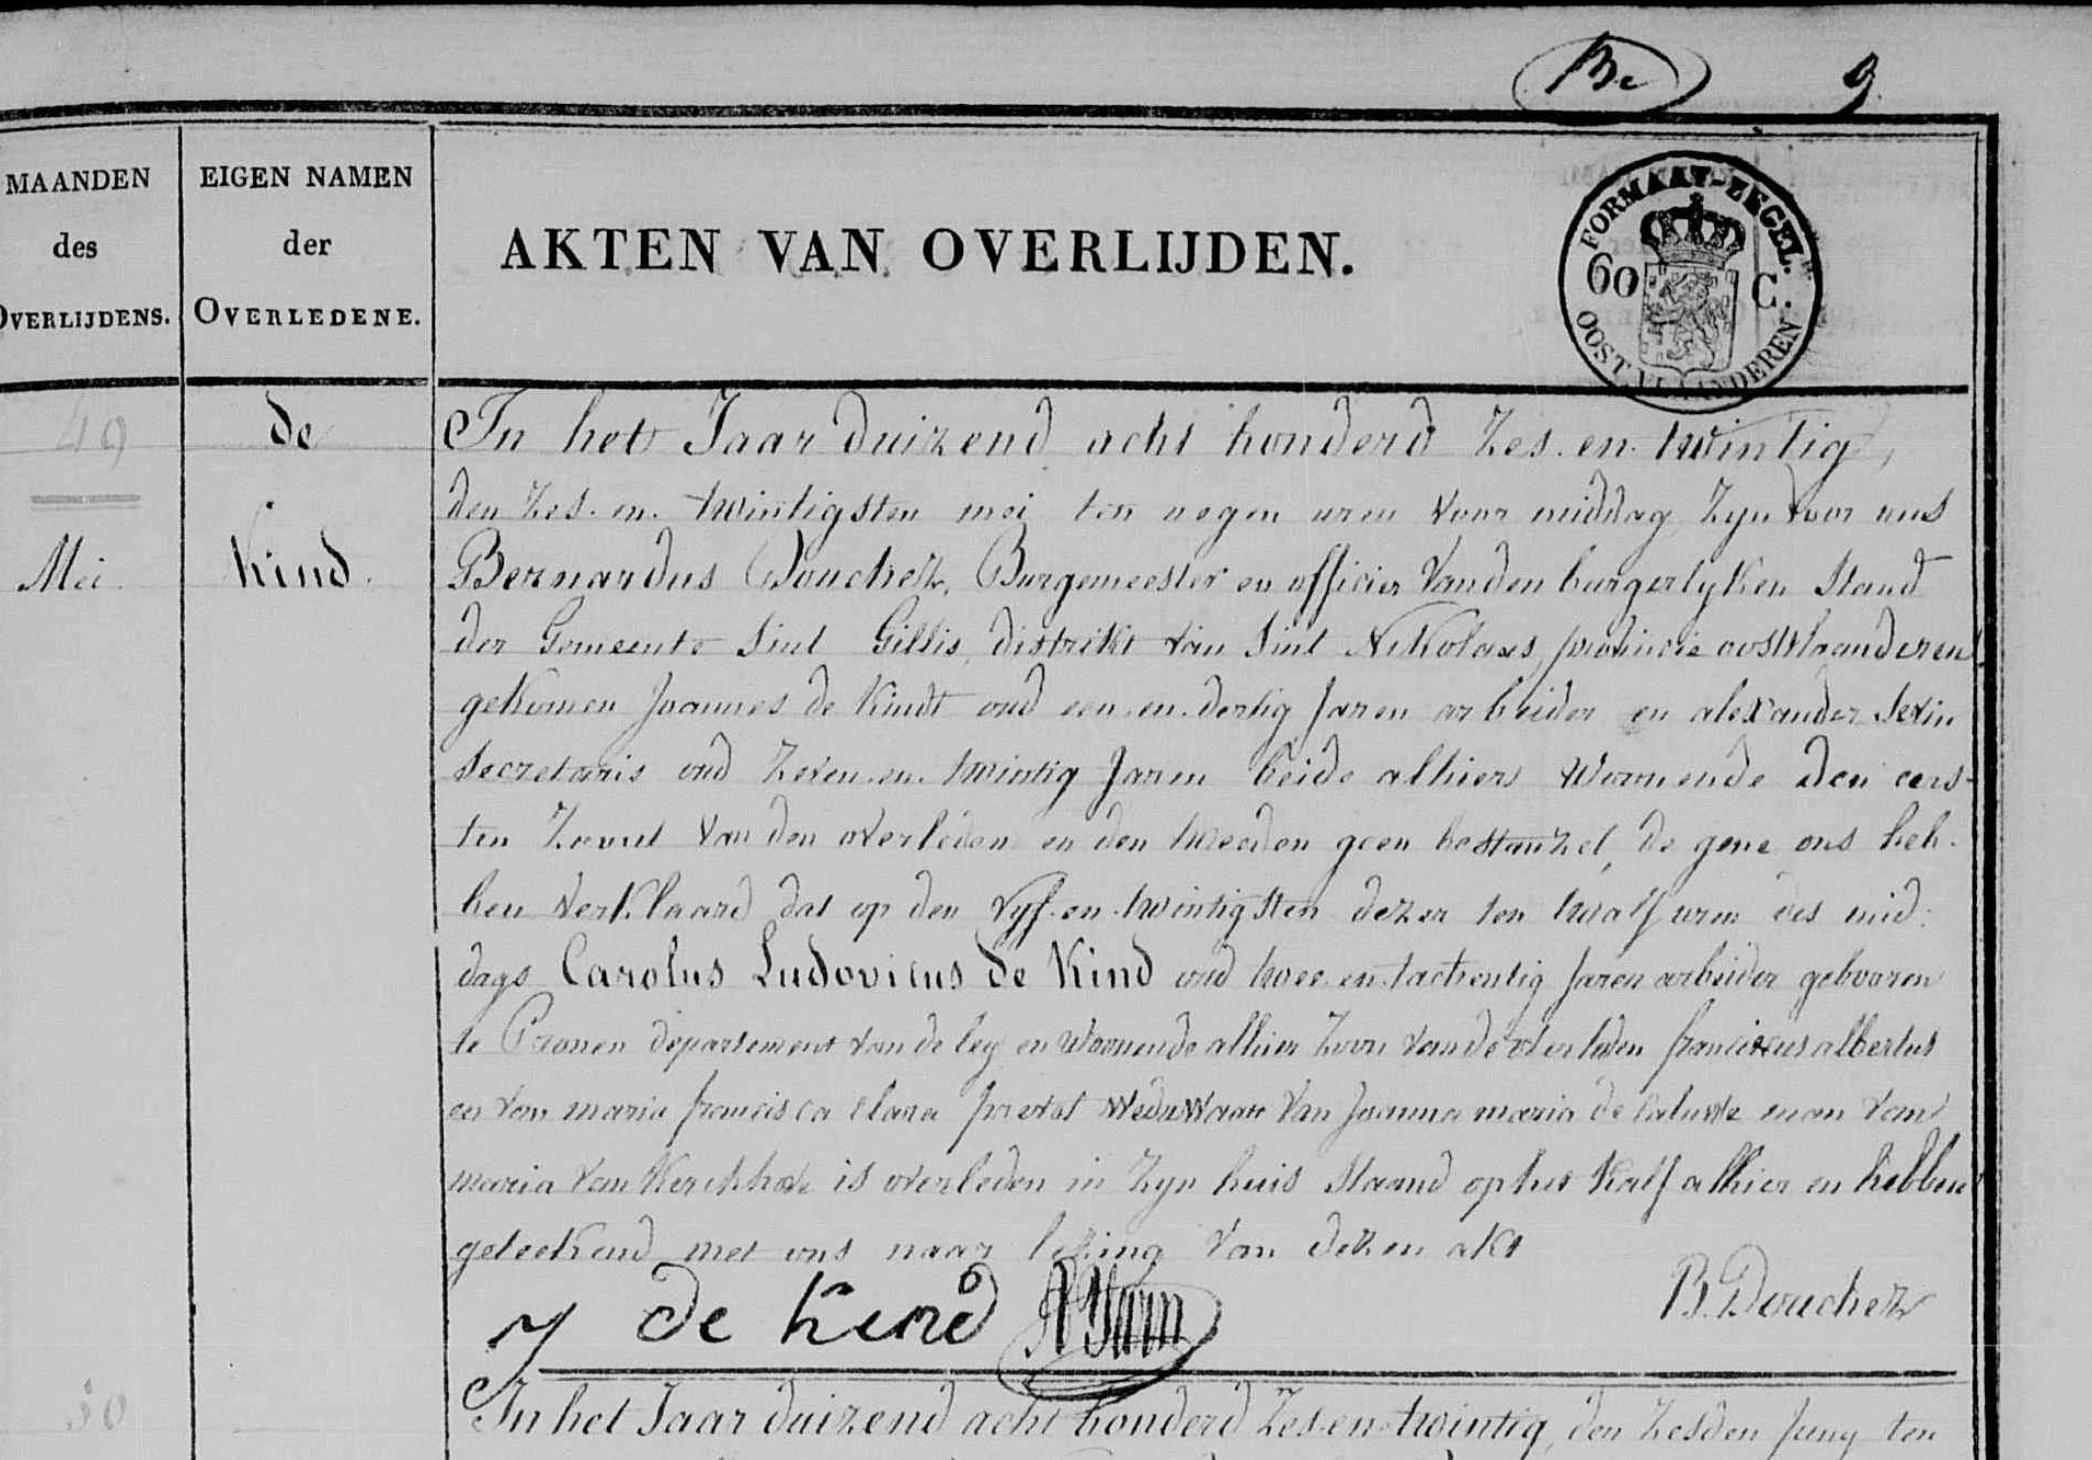 Be 9
MAANDEN
des
OVERLIJDENS.
EIGEN NAMEN
der
OVERLEDENE.
AKTEN VAN OVERLIJDEN.
FORMAAT-ZEGEL.
60 C.
OOST VLAANDEREN
49
Mei.
de
Kind.
In het Jaar duizend acht honderd zes-en-twintig,
den zes-en-twintigsten mei ten negen uren voor middag zyn voor ons
Bernardus Douchez, Burgemeester en officier van den burgerlyken stand
der Gemeente Sint Gillis, distrikt van Sint Nikolaas, provincie oostvlaanderen
gekomen Joannes de Kindt oud een-en-dertig Jaren arbeider en alexander Sevin
secretaris oud zeven-en-twintig Jaren beide alhier woonende den eers-
ten zoone van den overleden en den tweeden geen bestaanzel, de gene ons heb-
ben verklaard dat op den vyf-en-twintigsten dezer ten twalf uren des mid-
dags Carolus Ludovicus de Kind oud twee-en-tachentig Jaren arbeider gebooren
te departement van de leye en woonende alhier zoon van de overleden franciscus albertus
en van maria francisca clara prevot weduwaar van Joanna maria de caluwe man van
maria van Kerckhove is overleden in zyn huis staand op het Kalf alhier en hebben
geteekend met ons naar lezing van dezen akt
J de Kind B. Douchez
50
In het Jaar duizend acht honderd zes-en-twintig, den zesden Juny ten